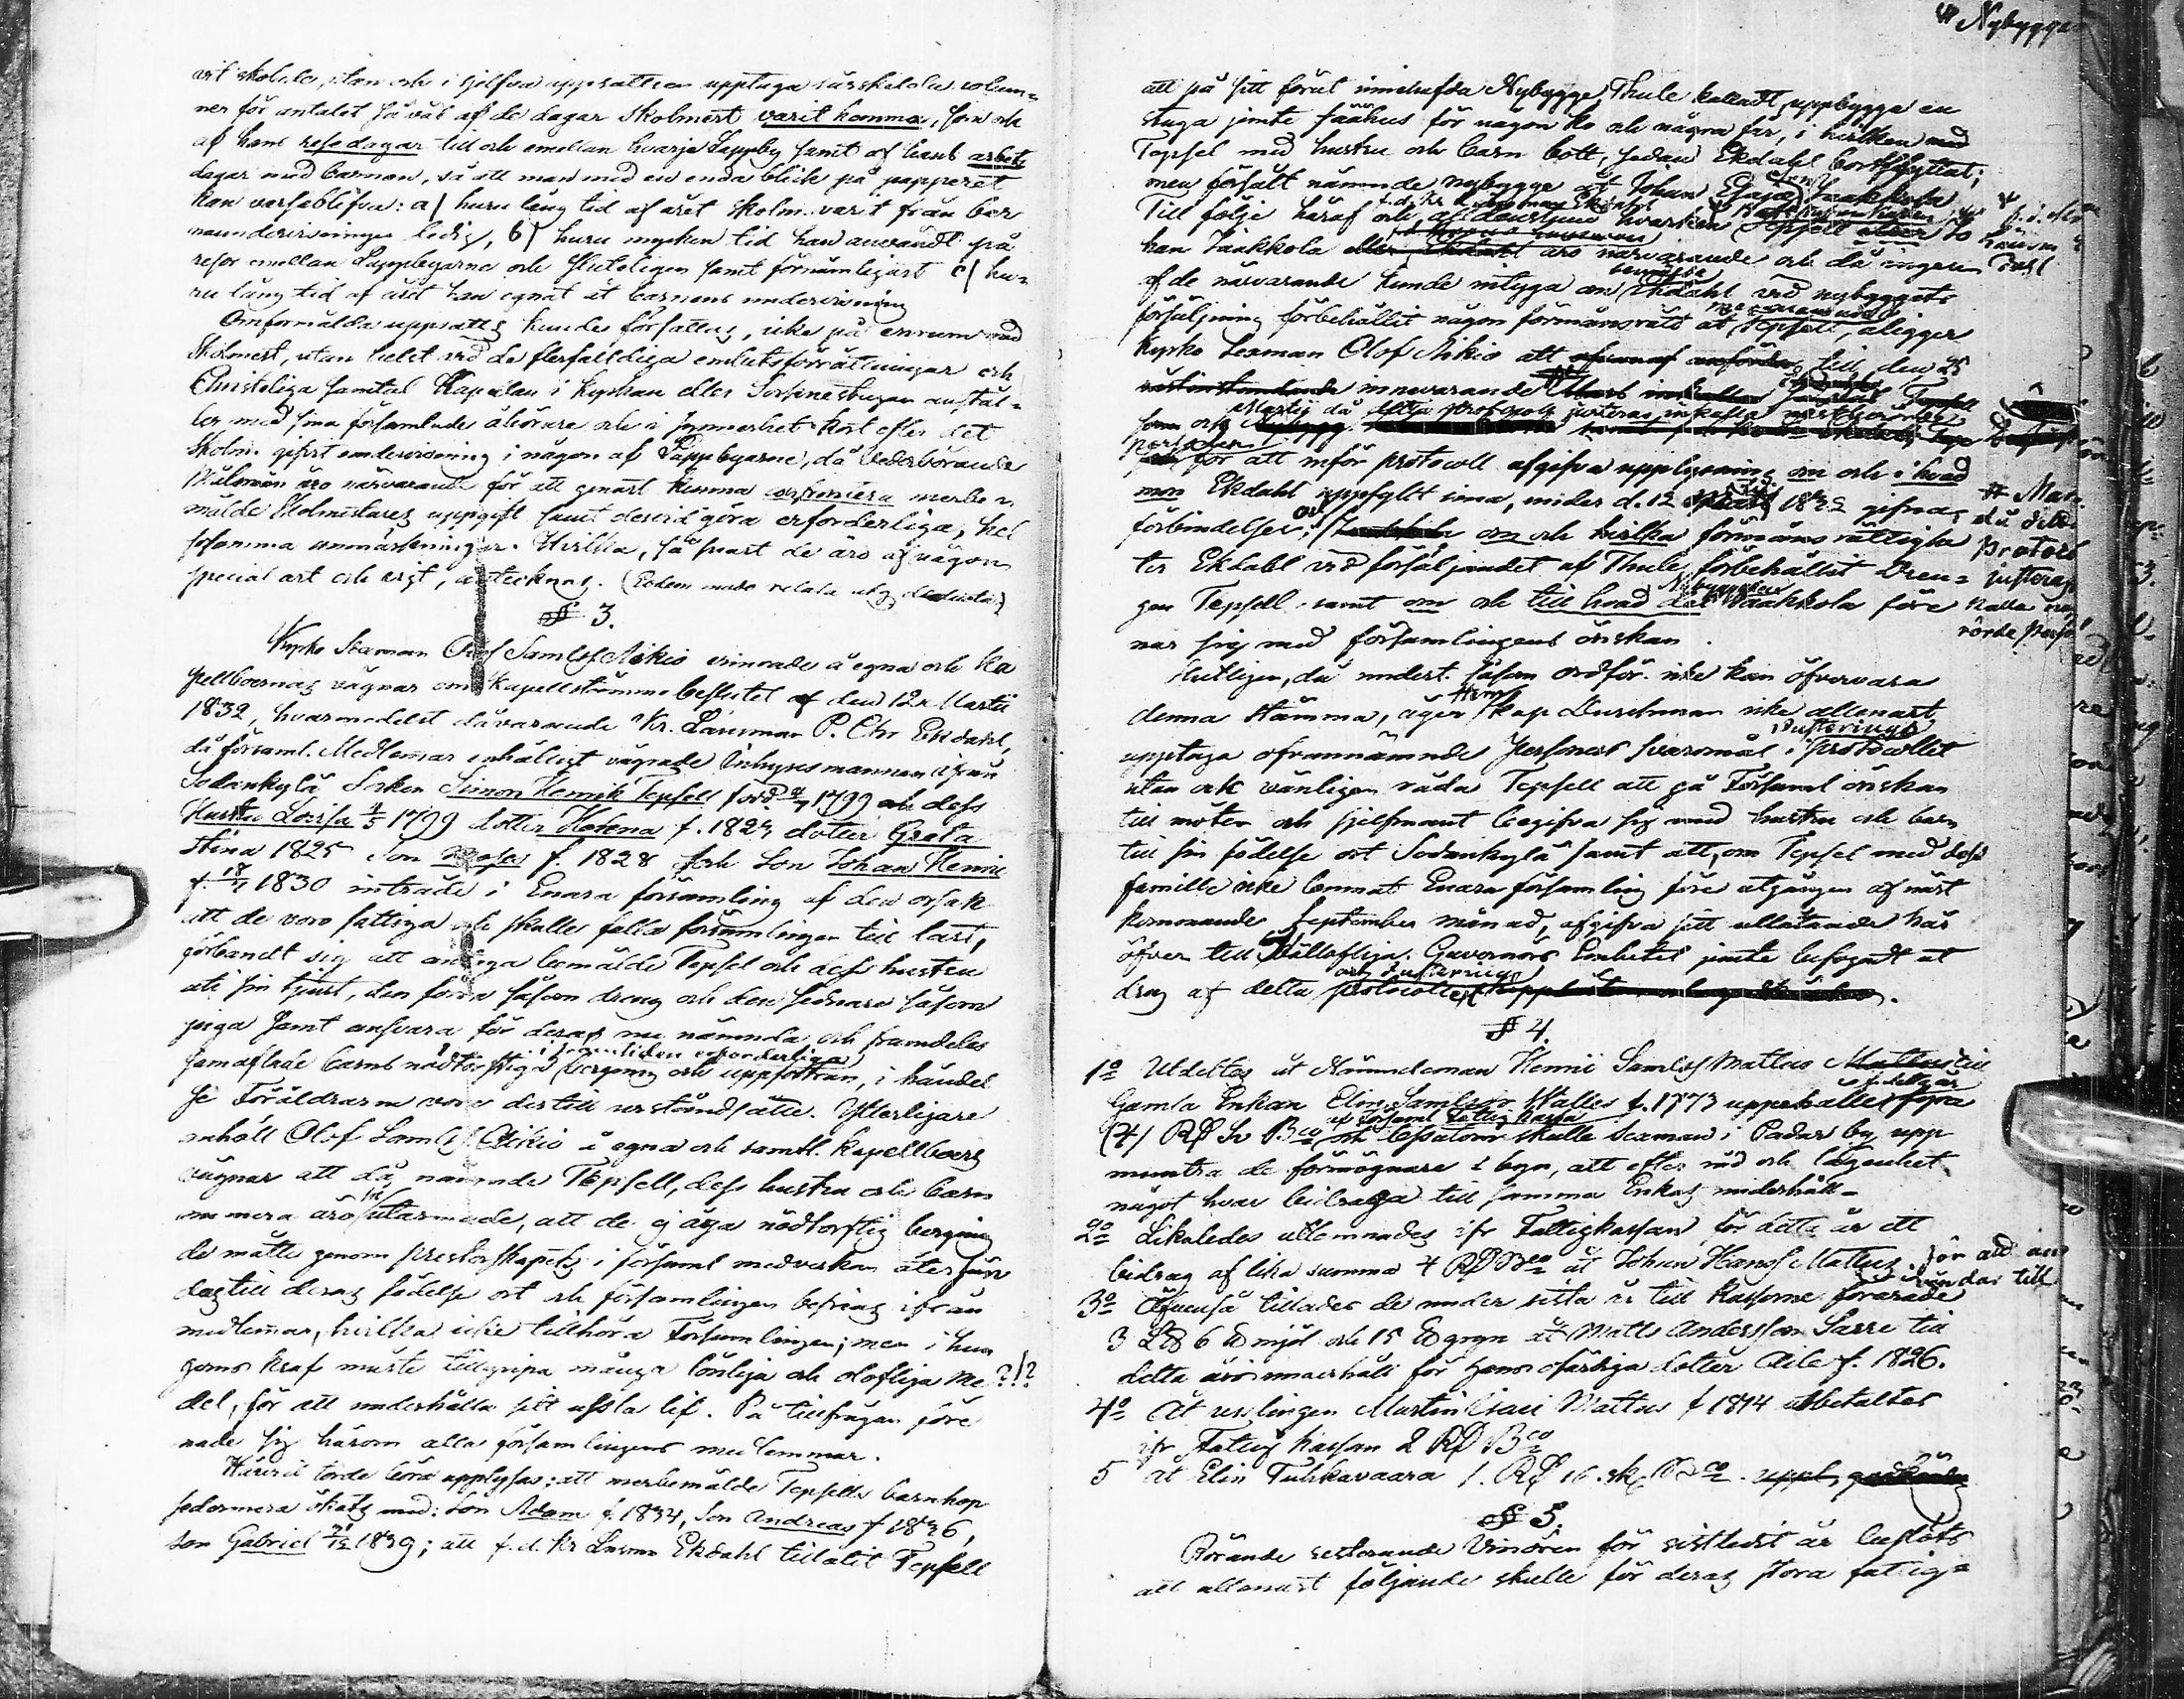 utan och i sjelfva uppsatsen upptaga särskilda colum=
ner för antalet så väl af de dagar skolmest. varit hemma, som och
af hans resedagar till och emellan hvarje Lappby samt af hans arbets
dagar med barnen, så att man med en enda blick på papperet
kan varseblifva: a) huru lång tid af året skolm. varit från bar
naundervisningen ledig, b) huru mycken tid han användt på
resor emellan Lappbyarne och slutligen samt förnämligast c) hu=
ru lång tid af året han egnat åt barnens undervisning
Omformälda uppsatts kunde författas, icke på enrum med
Skolmest, utan helst vid de flerfalldiga embetsförrättningar och
Christeliga samtal Kapelan i kyrkan eller Socknestugan anstäl=
ler med sina församlade åhörare och i synnerhet kort efter det
Skolm. gifvit undervisning i någon af Lappbyarne, då vederbörande
Målsmän äro närvarande för att genast kunna confrontera merbe=
mälde Skolmästares uppgift samt dervid göra erforderliga, hel
sosamma anmärkningar. Hvilka, så snart de äro af någon
special art och vigt, antecknas. (Eodem modo relata
§ 3.
Kyrko Seaman Olof Samls Aikio erinrade å egna och Ka
pellboernas vägnar om Kapellstämmo beslutet af den 12 Martii
1832, hvarmedelst dåvarande Kr. Länsman P. Chr Ekdahl,
då församl. Medlemar enhäligt vägrade Inhyresmannen ifrån
Sodankylä Socken Simon Henrik Tepsell född 1799 och dess
Hustru Lovisa 4/5 1799 dotter Helena f. 1823 dotter Greta
Stina 1825 Son f. 1828 och Son Johan Henric
f. 1830 inträde i Enara församling af den orsak
att de voro fattiga och skulle falla församlingen till last,
förbandt sig att antaga bemälde Tepsel och dess hustru
uti sin tjenst, den förra såsom dräng och den sednare såsom
piga samt ansvara för deras nu nämnda och framdeles
i framtiden erforderliga
samaflade barns nödtorftiga bergning och uppfostran, i händel
se Föräldrarne voro dertill urståndsatte. Ytterligare
anhöll Olof Samls Aikio å egna och samtl. kapellboers
vägnar att då, nämnde Tepsell, dess hustru och barn
numera äro så utarmade, att de ej äga nödtorftig bergning
de måtte genom presterskapets i församl medverkan återsän
das till deras födelse ort och församlingen befrias ifrån
medlemar, hvilka icke tillhöra Församlingen; men i hun
gerns kraf måste tillgripa många lönliga och olofliga Me ?!?
del, för att underhålla sitt usla lif. På tillfrågan före
nade sig härom alla församlingens medlemmar.
Härvid torde böra upplysas: att merbemälde Tepsells barnhop
sedermera ökats med: Son Adam f. 1834, Son Andreas f 1836,
Son Gabriel 1839; att f. d. Kr Länsman Ekdahl tillåtit Tepsell
# Nybygga
att på sitt förut innehafda Nybygge, Thule kalladt uppbygga en
stuga jemte fäähus för någon ko och några får, i hvilken med
Tepsel med hustru och barn bott, sedan Ekdahl bortflyttat;
men försålt nämnde nybygge åt Johan Saakkola
Till följe häraf och alldenstund hvarken Tepsell eller Jo
han Saakkola eller Ekdahl äro närvarande och då ingen
bemälde
af de närvarande kunde intyga om Ekdahl vid nybyggets
försäljning förbehållit någon förmånsrätt åt Tepsell, åligger
Kyrko Seaman Olof Aikio att till den 25
innevarande
då detta protocoll justeras inkalla vederbörande
personer
för att inför protocoll afgifva upplysning om och i hvad
mon Ekdahl uppfyllt sina, under d. 12 1832 gifna
förbindelser; om och hvilka förmåns rättighe
ter Ekdahl vid försäljandet af Thule förbehållit Dren=
gen Tepsell, samt om och till hvad del Saakkola före
nar sig med församlingens önskan.
# Mars
då detta
protocol
justeras
kalla ved
rörde perso
Slutligen, då undert. såsom ordför. icke kan öfvervara
denna stämma, äger Herr kap. Durchman icke allenast
Justerings
upptaga ofvannämnde personers svaromål i protocollet
utan och vänligen råda Tepsell att på Församl önskan
till möten och sjelfmant begifva sig med hustru och barn
till sin födelse ort Sodankylä samt att, om Tepsel med dess
famille icke lemnat Enara församling före utgången af näst
kommande September månad, afgifva sitt utlåtande här
öfver till Höllofliga. Guvernörs Embetet jemte bifogadt ut
drag af detta protocollet
och Justerings
§ 4.
1o Utdeltes åt Nämndeman Henric Samls Mattus till
Gamla Enkan Elin Samlsdr Walles f. 1773 uppehälle
af Församl Fattig kassa
(4) Rd Sv Bco och skulle Seaman i Padar by upp
muntra de förmögnare i byn, att efter råd och lägenhet
något hvar bidraga till samma Enkas underhåll.
2o Likaledes utlemnades ifr Fattigkassan för detta år ett
bidrag af lika summa 4 Rd Bco åt Johan Hanss Mattus.
3o Äfvenså tillades de under sista år till kassorne förärade
3 L℔ 6 ℔ mjöl och 15 ℔ gryn åt Matts Andersson Sarre till
detta års underhåll för hans ofärdiga dotter f. 1826.
4o Åt usslingen Martin Isaci Mattus f 1814 utbetaltes
ifr Fattig kassan 2 Rd Bco
5 åt Elin Tuhkavaara 1. Rd 16. sk. Bco.
§ 5.
Rörande resterande Vinören för sistledit år beslöts
att allenast följande skulle för deras stora fattig=